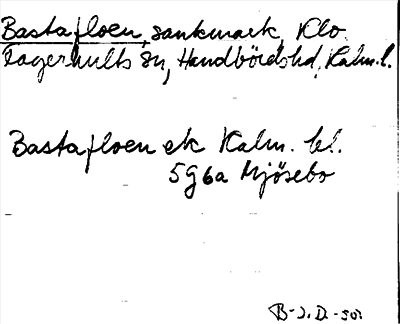 Bastafloen, sankmark, Klo.
Lagerhults sn, Handbördshd, Kalm.l.
Bastafloen ek Kalm. bl.
5G6a Mjösebo
B-J.D.-50.